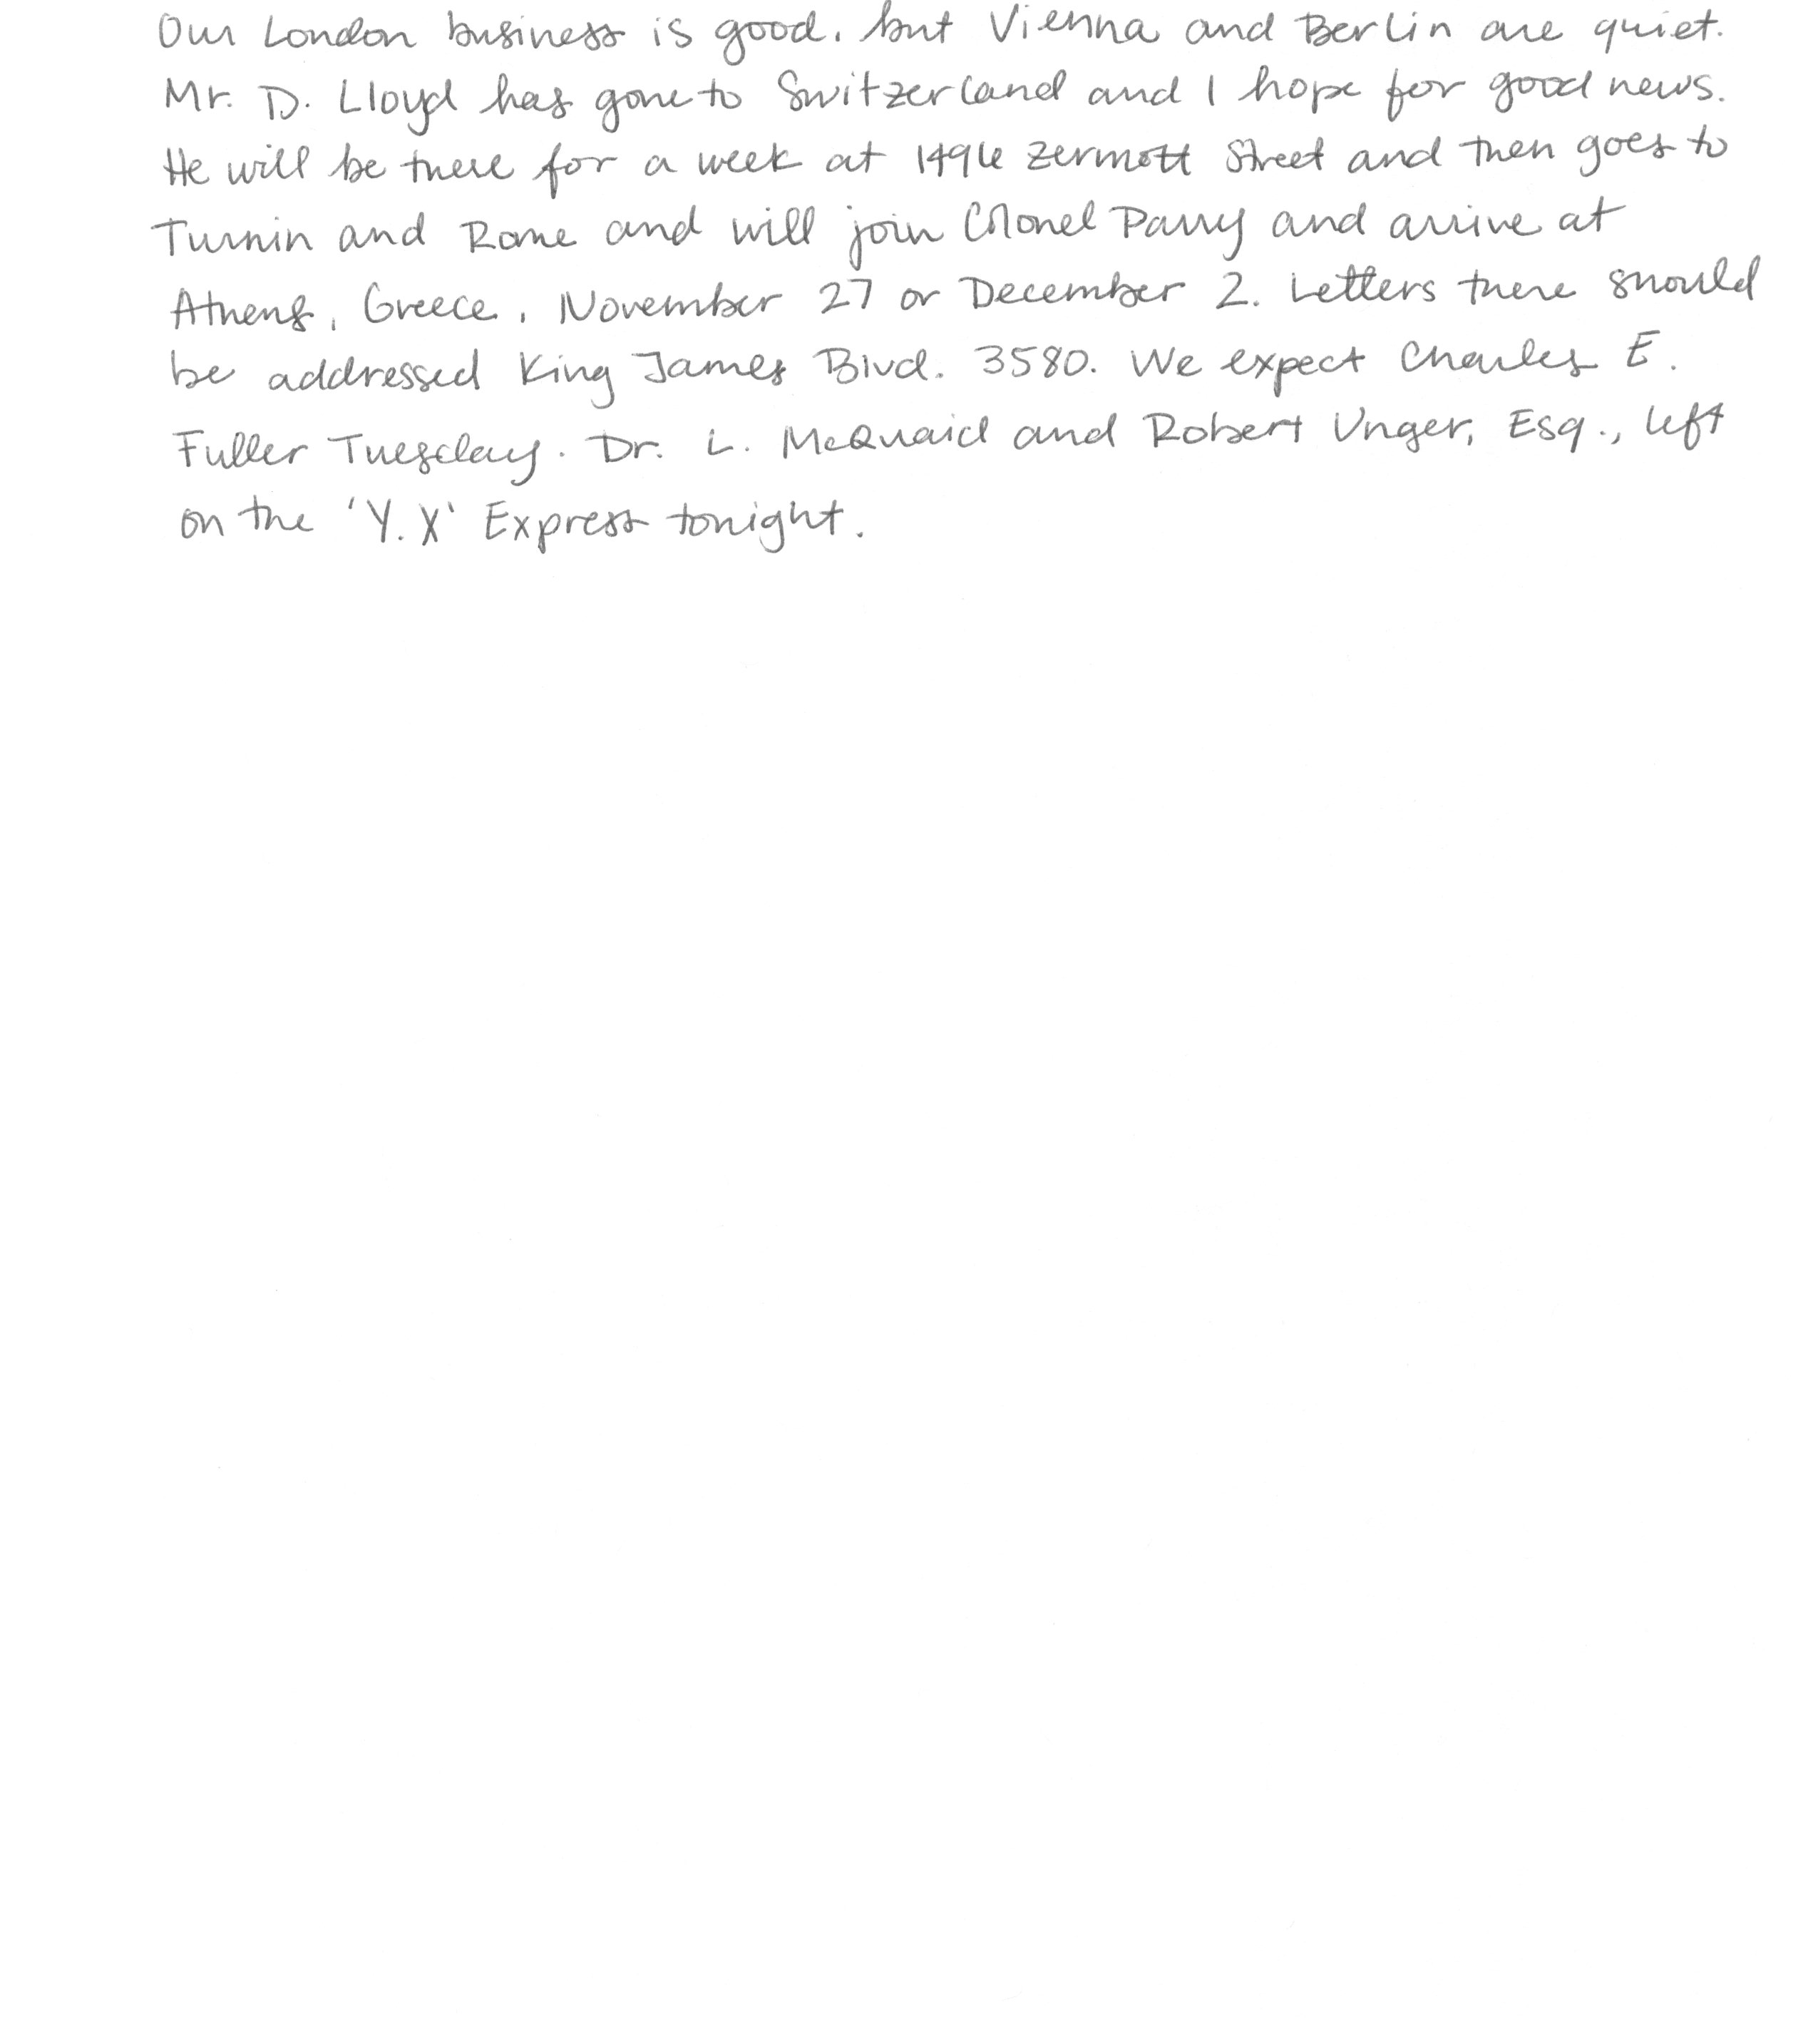 Our London business is good, but Vienna and Berlin are quiet.
Mr. D. Lloyd has gone to Switzerland and I hope for good news.
He will be there for a week at 1496 Zermott Street and then goes to
Turnin and Rome and will join Colonel Parry and arrive at
Athens, Greece, November 27 or December 2. Letters there should
be addressed King James Blvd. 3580. We expect Charles E.
Fuller Tuesday. Dr. L. McQuaid and Robert Unger, Esq., left
on the 'Y.X' Express tonight.